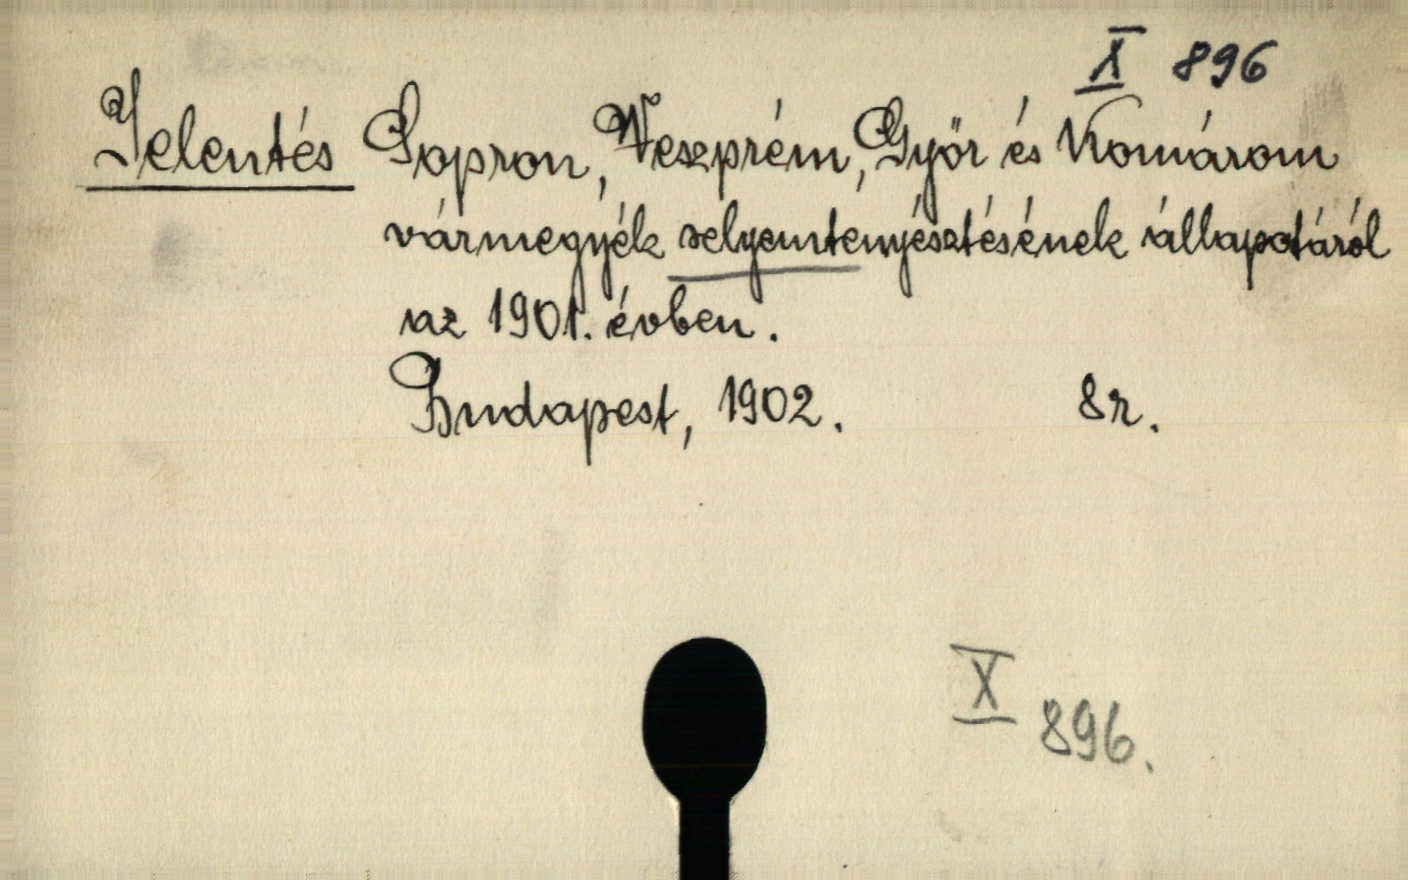 X 896
Jelentés Sopron, Veszprém, Györ és Komárom
vármegyék selyemtenyésztésének állapotáról
az 1901. évben.
Budapest, 1902. 8r.
X 896.